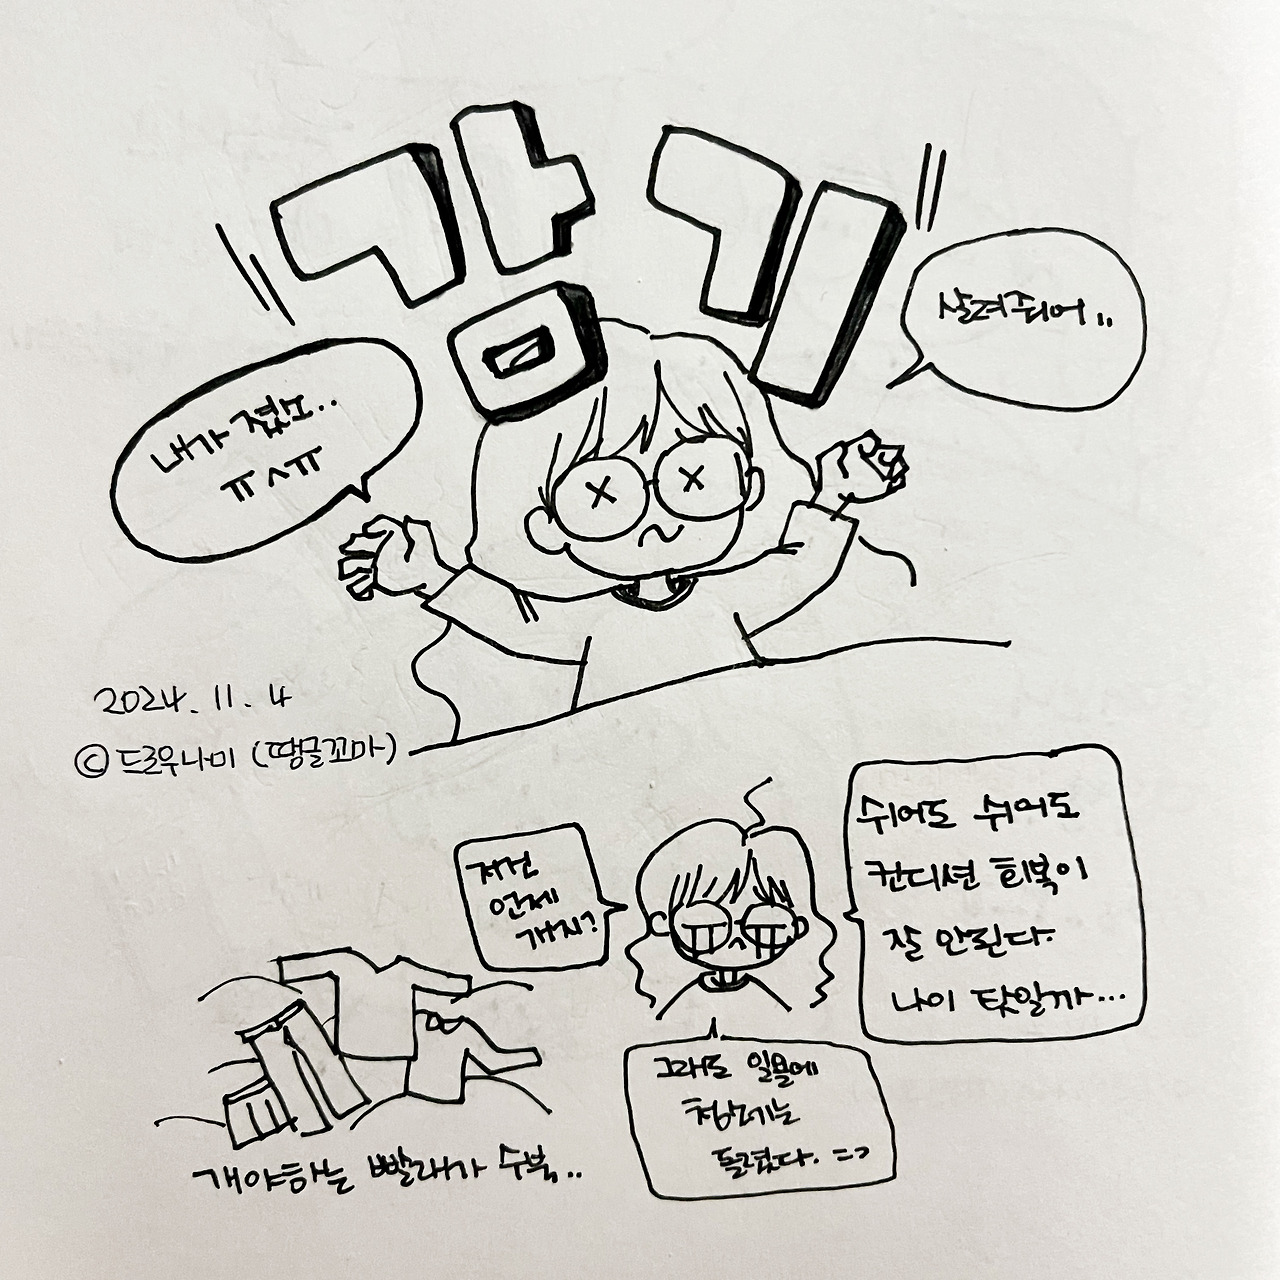 감기
내가 졌소..
ㅠㅅㅠ
살려줘어..
2024. 11. 4
© 드로우나미 (땡글꼬마)
저건
언제
개지?
쉬어도 쉬어도
컨디션 회복이
잘 안된다.
나이 탓일까...
그래도 일본에
청소기는
돌렸다. =3
개야하는 빨래가 수북..